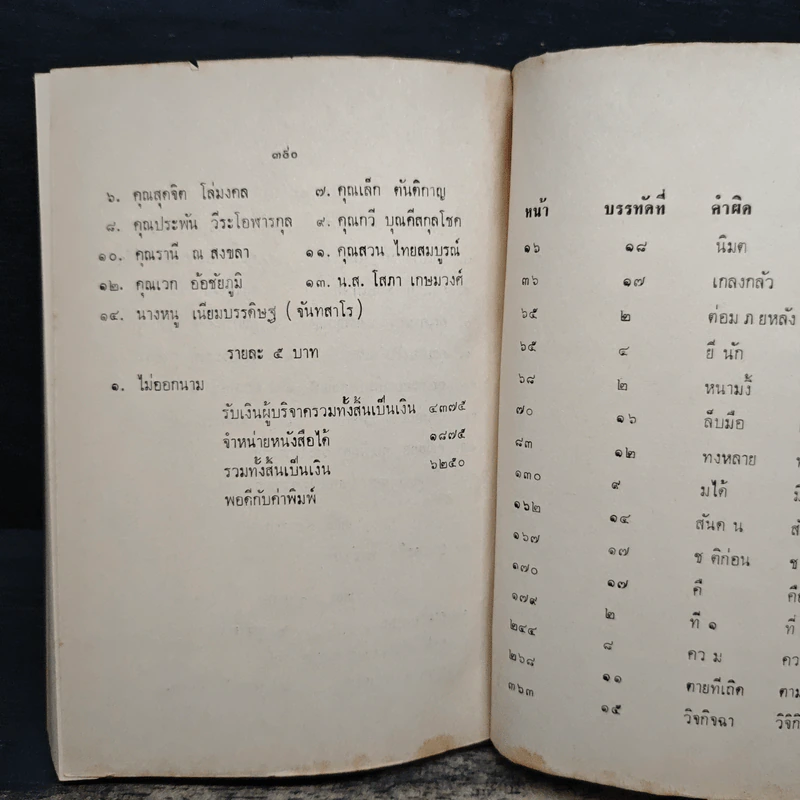 ๓๙๐
๖. คุณสุดจิต โล่มงคล ๗. คุณเล็ก ตันติกาญ
๘. คุณประพัน วีระโอฬารกุล ๙. คุณกวี บุณคีสกุลโชค
๑๐. คุณรานี ณ สงขลา ๑๑. คุณสวน ไทยสมบูรณ์
๑๒. คุณเวก อ้อชัยภูมิ ๑๓. น.ส. โสภา เกษมวงศ์
๑๔. นางหนู เนียมบรรดิษฐ (จันทสาโร)
รายละ ๕ บาท
๑. ไม่ออกนาม
รับเงินผู้บริจาครวมทั้งสิ้นเป็นเงิน ๔๓๗๕
จำหน่ายหนังสือได้ ๑๘๗๕
รวมทั้งสิ้นเป็นเงิน ๖๒๕๐
พอดีกับค่าพิมพ์
หน้า บรรทัดที่ คำผิด
๑๖ ๑๘ นิมต
๓๖ ๑๗ เกลงกลัว
๖๕ ๒ ต่อม ภ ยหลัง
๖๕ ๔ ยี นัก
๖๘ ๒ หนามงั้
๗๐ ๑๖ ล็บมือ
๘๓ ๑๒ ทงหลาย
๑๓๐ ๙ มได้
๑๖๒ ๑๔ สันด น
๑๖๗ ๑๗ ช ติก่อน
๑๗๐ ๑๗ คื
๑๗๙ ๒ ที ๑ ที่
๒๔๔ ๘ คว ม
๒๖๘ ๑๑ ตายทีเถิด
๓๖๓ ๑๕ วิจกิจฉา